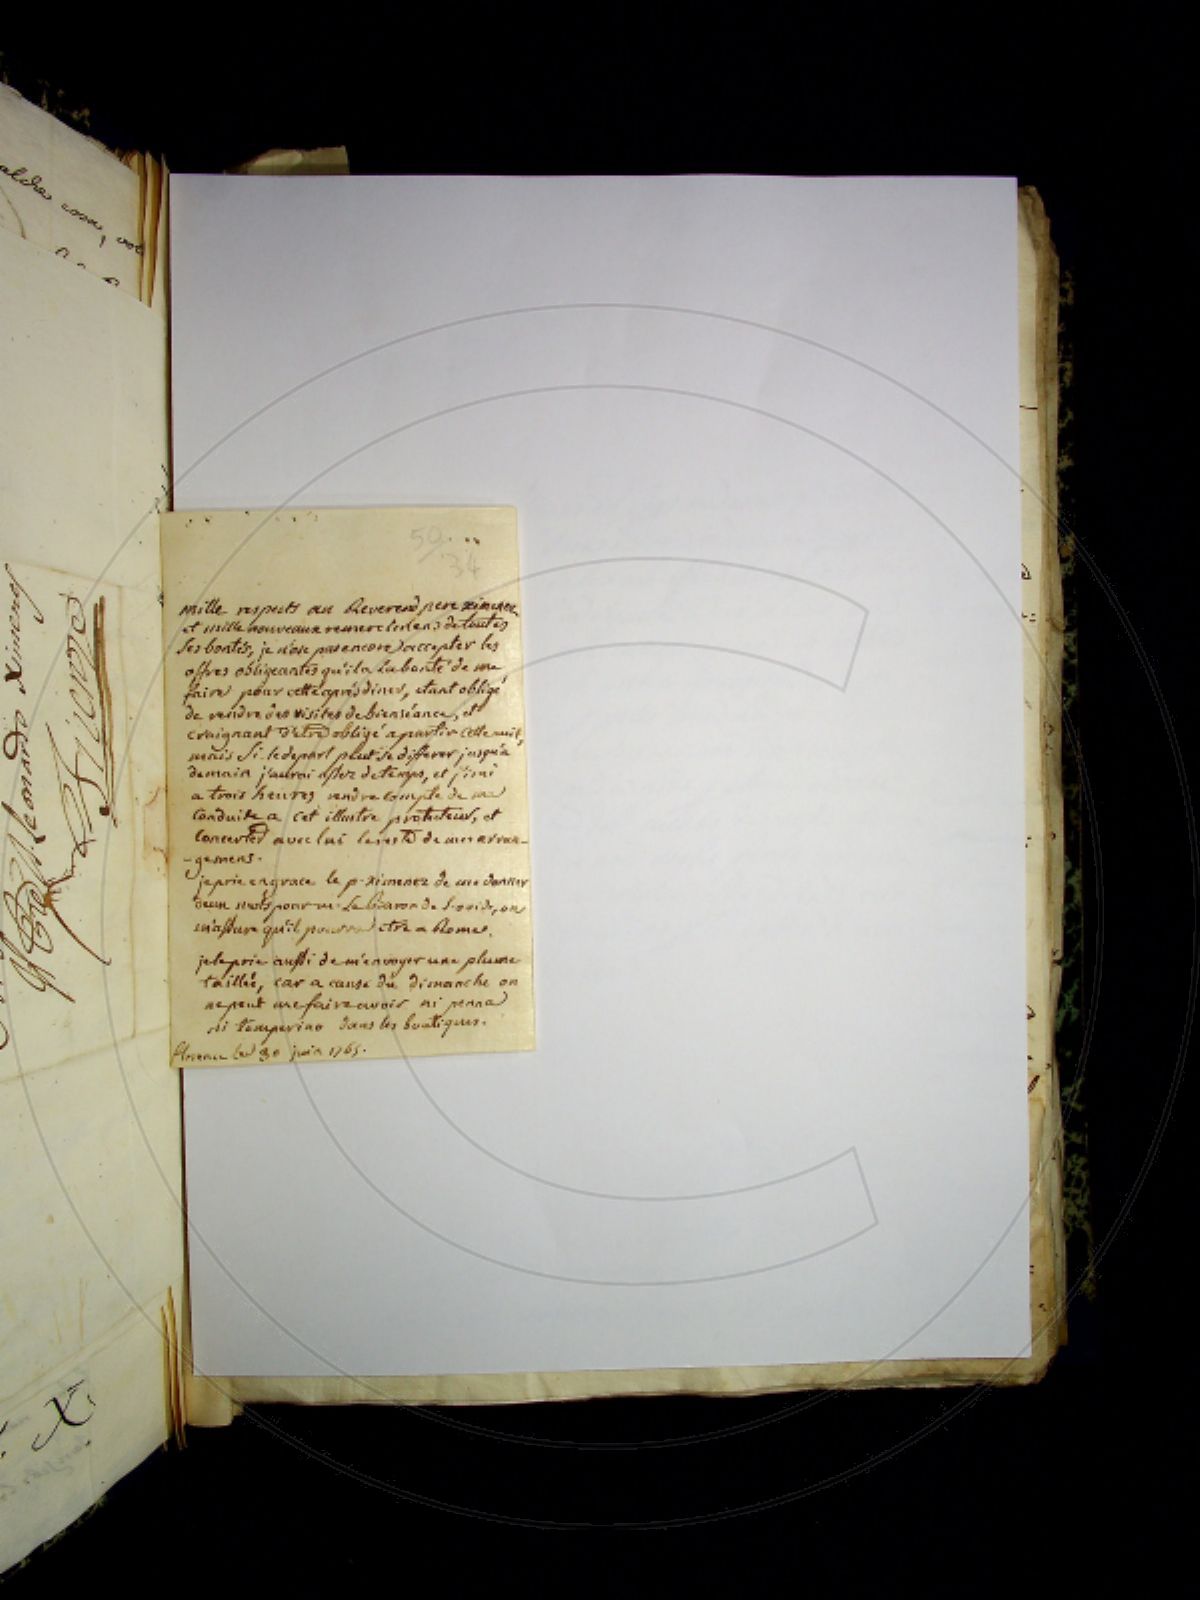 50
34
mille respects au Reverend pere ximenez
et mille nouveaux remerciemens de toutes
ses bontés, je n'ose pas encore accepter les
offres obligeantes qu'il a la bonté de me
faire pour cette après diner, etant obligé
de rendre des visites de bienséance, et
craignant d'etre obligé a partir cette nuit,
mais si le depart peut se differer jusqu'a
demain j'aurai assez de temps, et j'irai
a trois heures rendre compte de ma
conduite a cet illustre protecteur, et
concerter avec lui le reste de mes arran-
-gemens.
je prie en grace le p. Ximenez de me donner
deux mots pour mr. Le Baron de on
m'assure qu'il pourra etre a Rome.
je le prie aussi de m'envoyer une plume
taillée, car a cause du dimanche on
ne peut me faire avoir ni penna
ni temperino dans les boutiques.
florence le 30 juin 1765.
Leonardo Ximenes
Firenze
X.